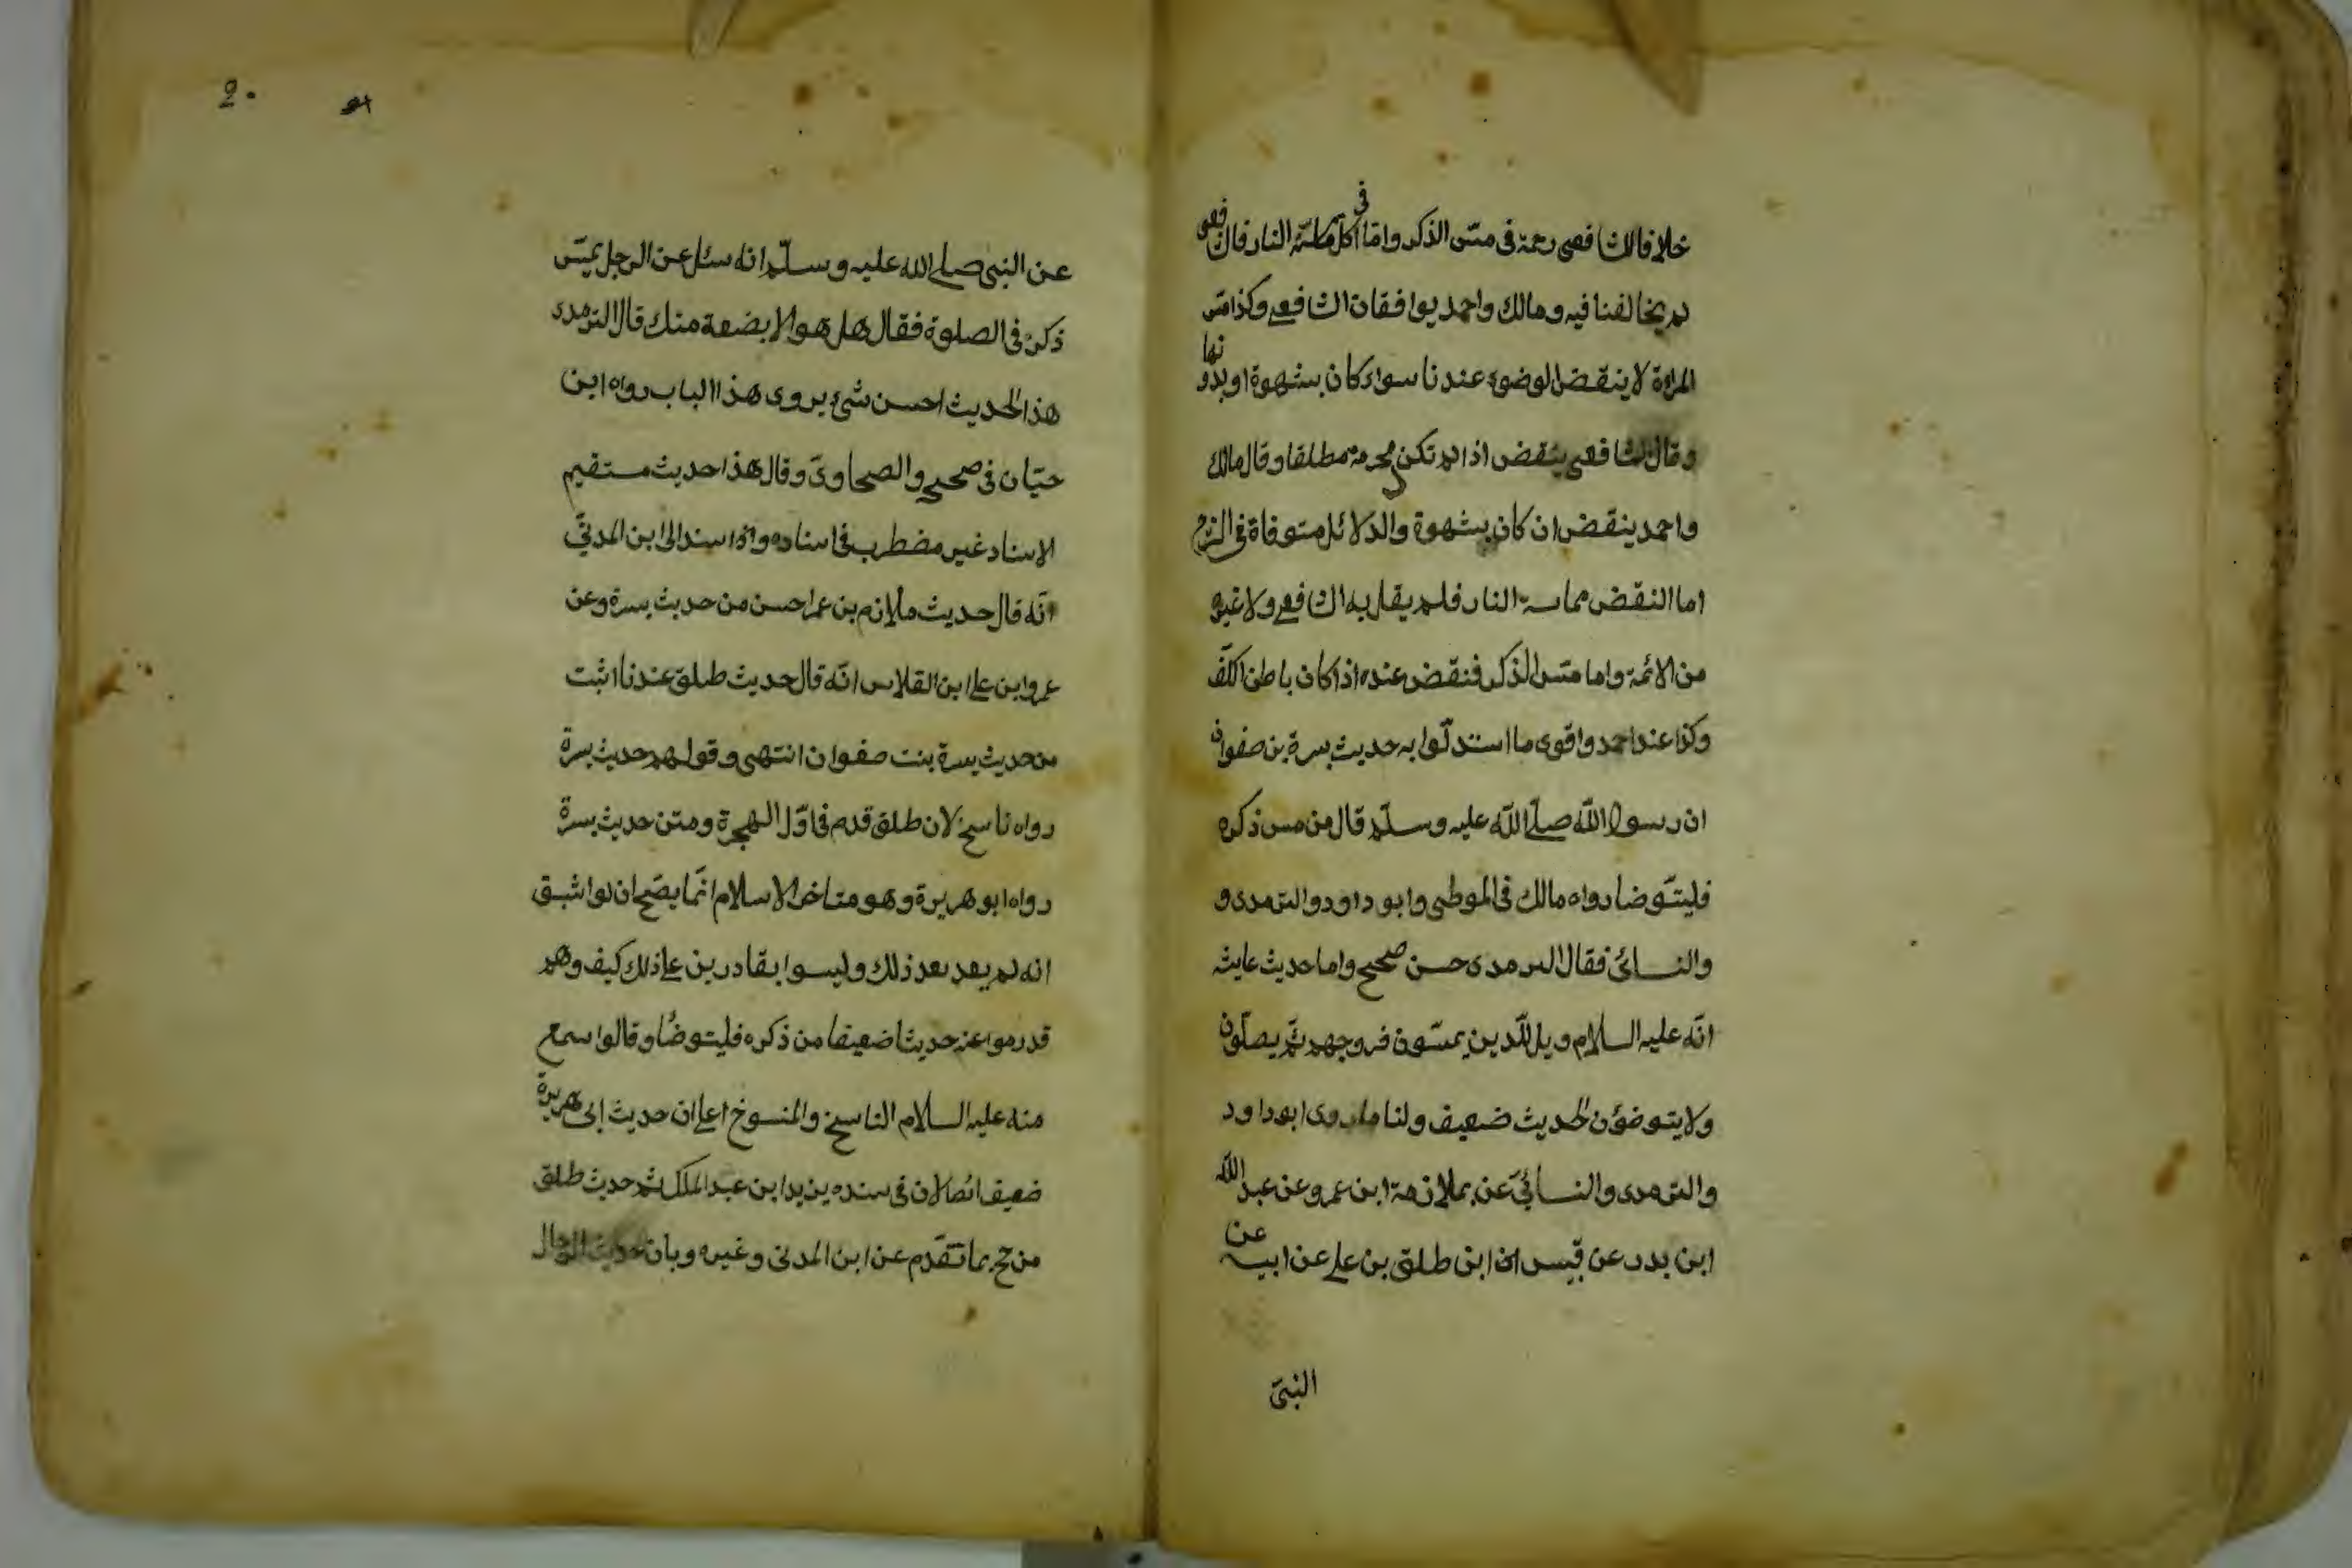 خلافا للشافعى رحمة فى مسّ الذكر وامّا فى اكل ماسّته النار فالشافعى
لم يخالفنا فيه ومالك واحمد يوافقان الشافعى وكذا مسّ
المراءة لا ينقض الوضوء عندنا سواء كان بشهوة او بدونها
وقال الشافعى ينقض اذا لم تكن محرمة مطلقا وقال مالك
واحمد ينقض ان كان بشهوة والدلائل متوفاة فى الشرح
اما النقض مماسته النار فلم يقل به الشافعى ولا غيره
من الائمة واما مسّ الذكر فنقض عنده اذا كان باطن الكفّ
وكذا عند احمد واقوى ما استدلّوا به حديث بسرة بن صفوان
ان رسول الله صلّى اللّه عليه وسلّم قال من مس ذكره
فليتوّضا رواه مالك فى الموطى وابو داود والترمدى و
والنسائى فقال الترمدى حسن صحيح واما حديث عايشه
انّه عليه السلام ويل للّدين يمسّون فروجهم ثمّ يصلّون
ولا يتوضؤن الحديث ضعيف ولنا ما روى ابو داود
والترمدى والنسائىّ عن بملازمة ابن عمرو عن عبد اللّه
ابن بدر عن قيس ابن طلق بن على عن ابيه عن
النبىّ
2٠
عن النبى صلى الله عليه وسلّم انه سئل عن الرجل يمسّ
ذكره فى الصلوة فقال هل هو الا بضعة منك قال الترمدى
هذا الحديث احسن شئ يروى هذا الباب رواه ابن
حبّان فى صحيح والصحاوىّ وقال هذا حديث مستقيم
الاسناد غير مضطرب فى اسناده واذا سند الى ابن المدنىّ
انّه قال حديث ملازم بن عمر احسن من حديث بسرة وعن
عمرو ابن على ابن القلاس انّه قال حديث طلق عندنا اثبت
من حديث بسرة بنت صفوان انتهى وقولهم حديث بسرة
رواه ناسخ لان طلق قدم فى اوّل الهجرة ومتن حديث بسرة
رواه ابو هريرة وهو متاخر الاسلام انّما يصّح ان لو اثبق
انه لم يعد بعد ذلك وليسوا بقادرين على ذلك كيف وهم
قد رموا عنه حديثا ضعيفا من ذكره فليتوضّا وقالوا سمع
منه عليه السلام الناسخ والمنسوخ اعلى ان حديث ابى هريرة
ضعيف ائصا لان فى سنده يزيد ابن عبد الملك ثم حديث طلق
من حج بما تقدّم عن ابن المدنى وغيره وبان حديث الرجال